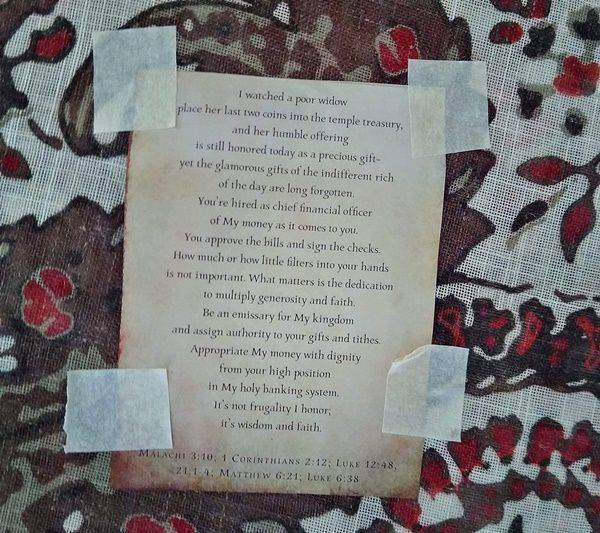 I watched a poor widow
place her last two coins into the temple treasury,
and her humble offering
is still honored today as a precious gift–
yet the glamorous gifts of the indifferent rich
of the day are long forgotten.
You're hired as chief financial officer
of My money as it comes to you.
You approve the bills and sign the checks.
How much or how little filters into your hands
is not important. What matters is the dedication
to multiply generosity and faith.
Be an emissary for My kingdom
and assign authority to your gifts and tithes.
Appropriate My money with dignity
from your high position
in My holy banking system.
It's not frugality I honor;
it's wisdom and faith.
Malachi 3:10; 1 Corinthians 2:12; Luke 12:48,
21:1-4; Matthew 6:21; Luke 6:38